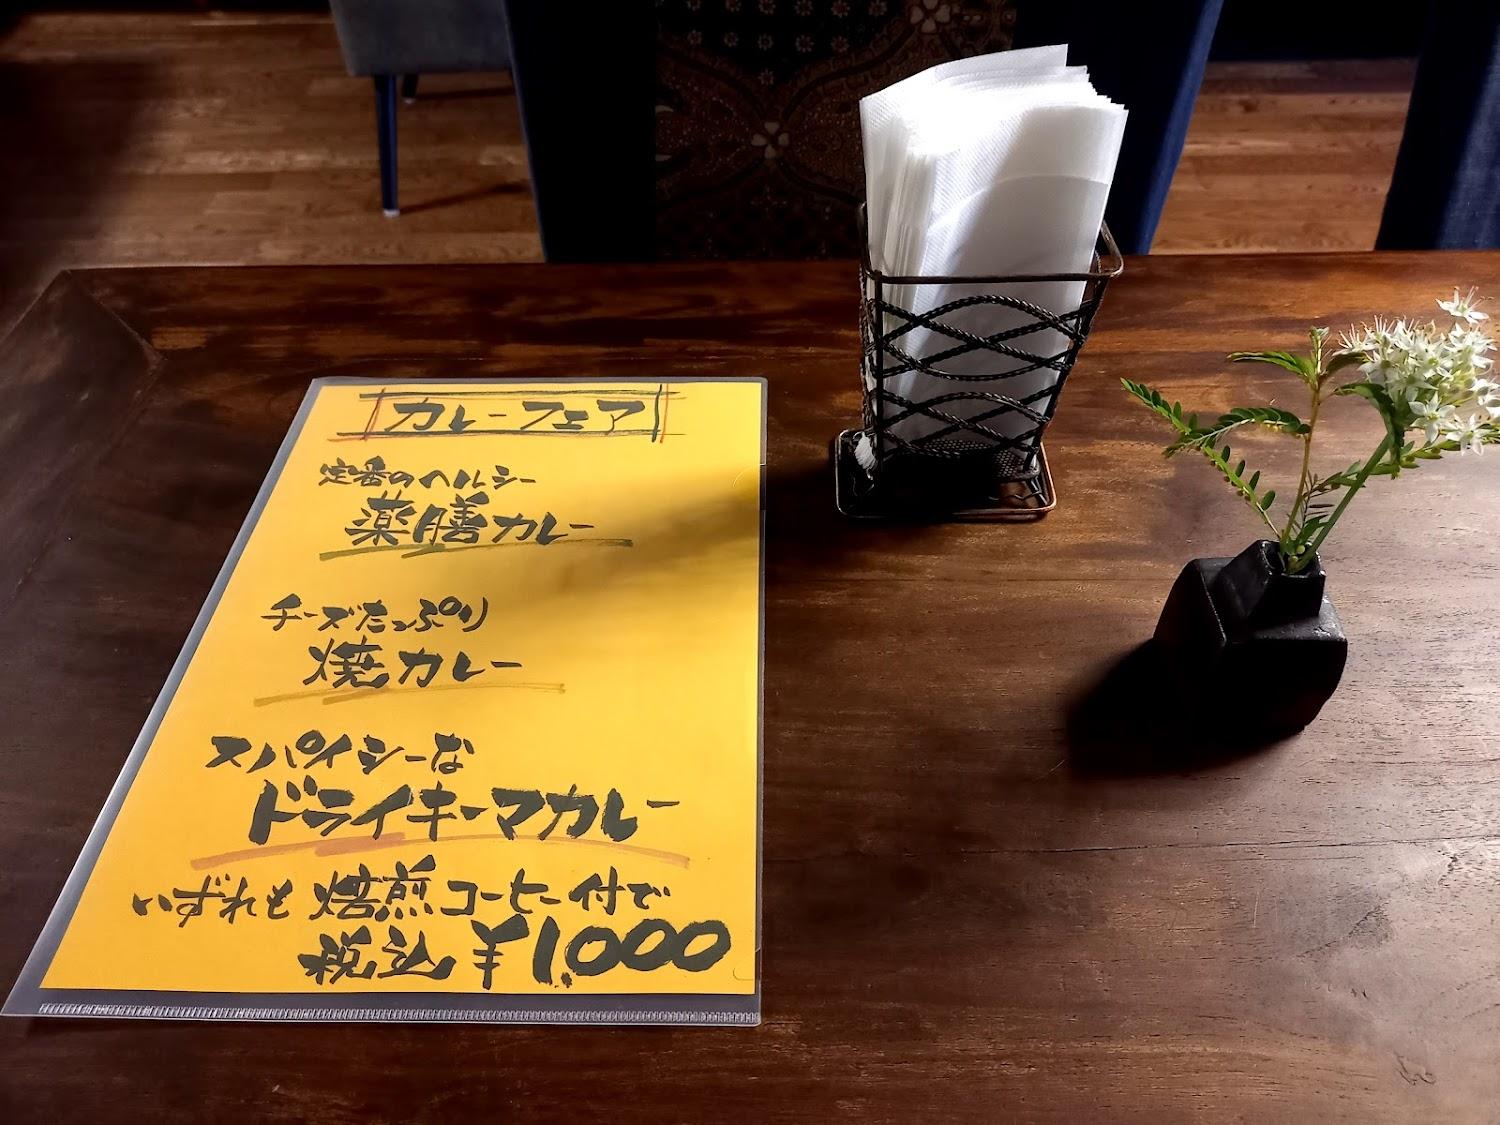 カレーフェア
定番のヘルシー
薬膳カレー
チーズたっぷり
焼カレー
スパイシーな
ドライキーマカレー
いずれも焙煎コーヒー付で
税込¥1,000